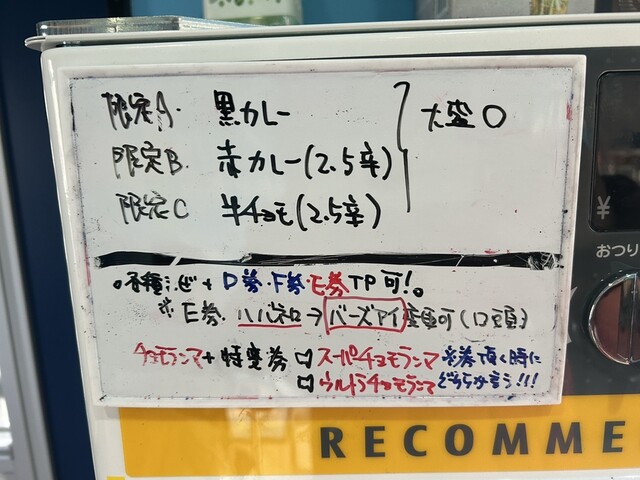 限定A. 黒カレー
限定B. 赤カレー(2.5辛) 大盛〇
限定C 半チョモ(2.5辛)
。各種まぜ + D券・F券・E券 TP可!。
※ E券. ハバネロ→バーズアイ変更可(口頭)
チョモランマ+特変券 □スーパチョモランマ ※券頂く時に
□ウルトラチョモランマ どちらか言う!!!
¥
おつり
RECOMME